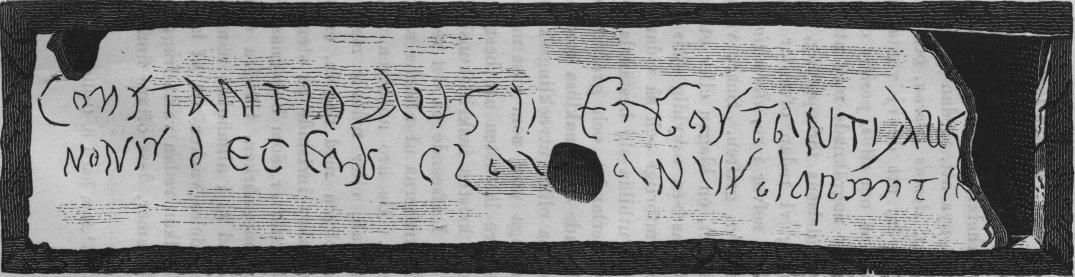 CONSTANTIO AUG II ET CONSTANTI AUG
NONIS DECEMBS CLAU ANUS DORMIT